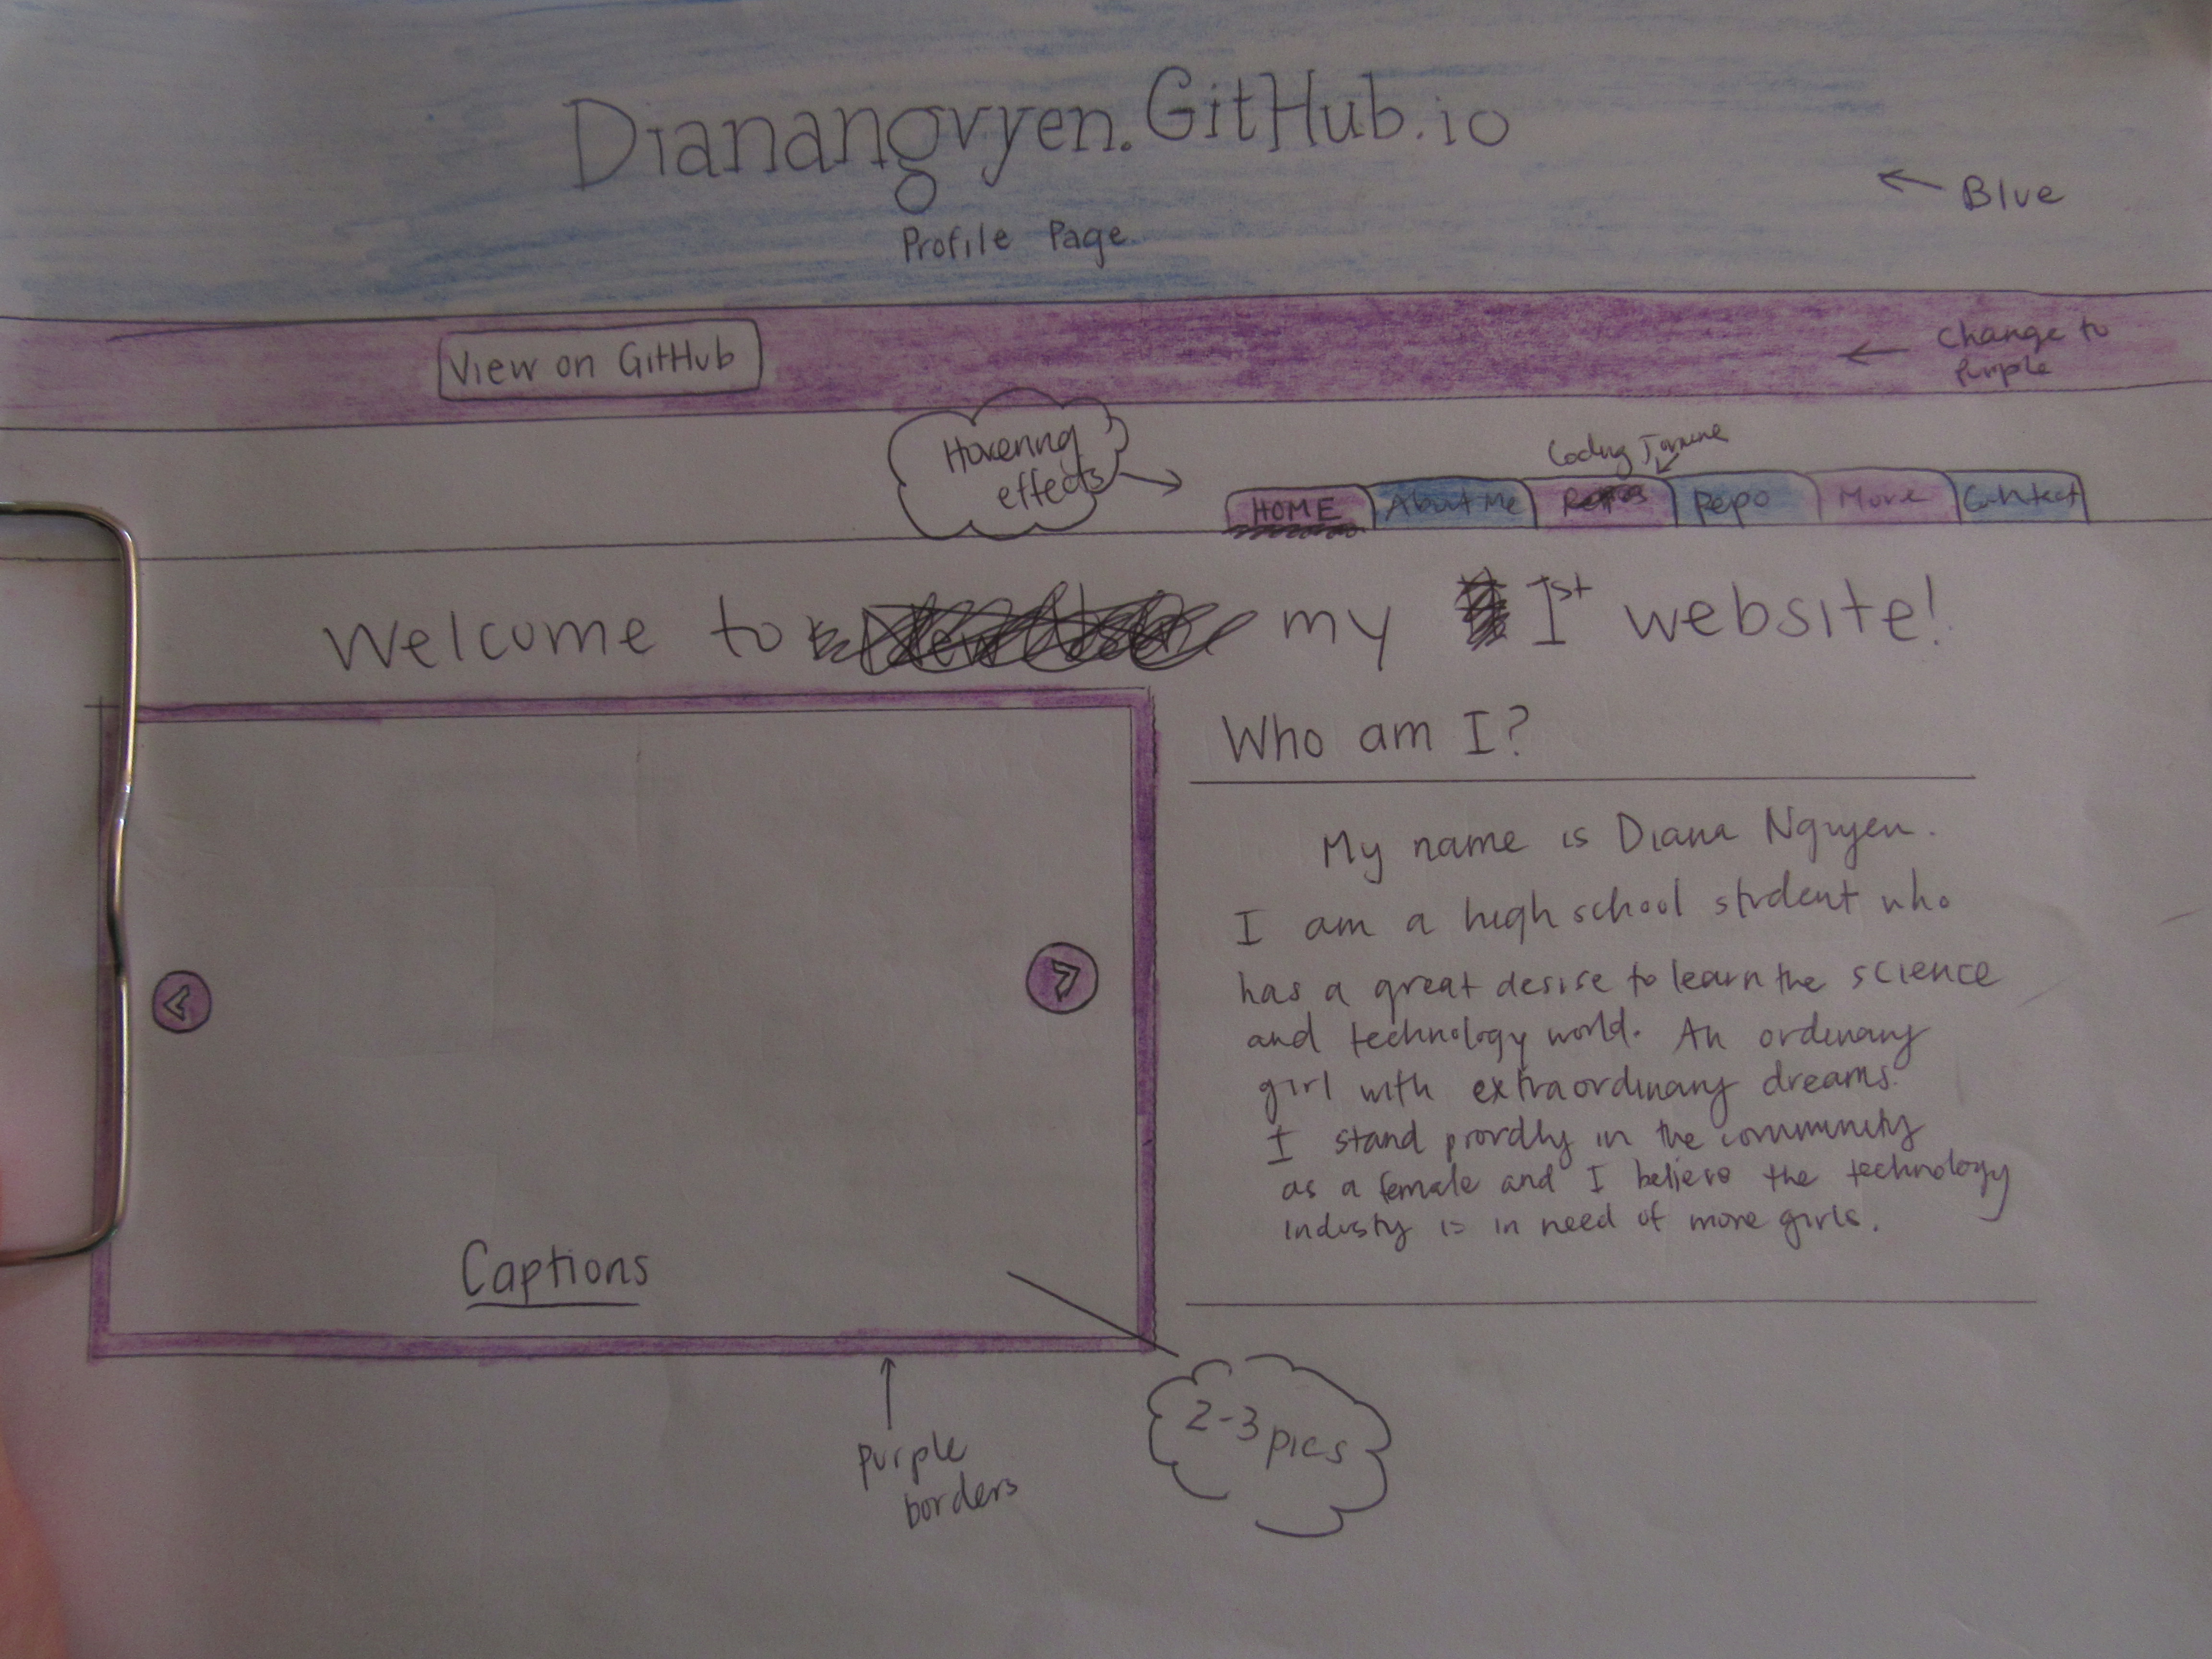 Dianangvyen.GitHub.io
Blue
Profile Page
View on GitHub
Change to
Purple
Hovering
effects
Coding
HOME
About Me
Repo
More
Contact
Welcome to my 1st website!
Who am I?
My name is Diana Nguyen.
I am a high school student who
has a great desire to learn the science
and technology world. An ordinary
girl with extraordinary dreams.
I stand proudly in the community
as a female and I believe the technology
industy is in need of more girls.
<
>
Captions
purple
borders
2-3 pics